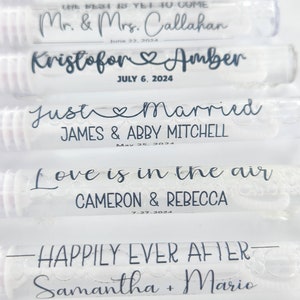 THE BEST IS YET TO COME
Mr. & Mrs. Callahan
June 22, 2024
Kristofor Amber
JULY 6, 2024
Just Married
JAMES & ABBY MITCHELL
May 25, 2024
Love is in the air
CAMERON & REBECCA
7.27.2024
HAPPILY EVER AFTER
Samantha + Mario